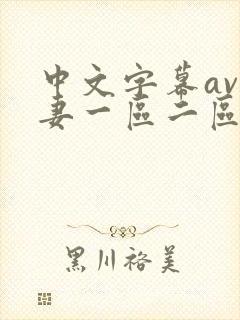 中文字幕av
妻一區二區
黑川裕美